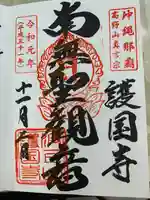 沖縄那覇
高野山真言宗
護国寺
南無聖観音
令和元年
(平成三十一年)
十一月 月